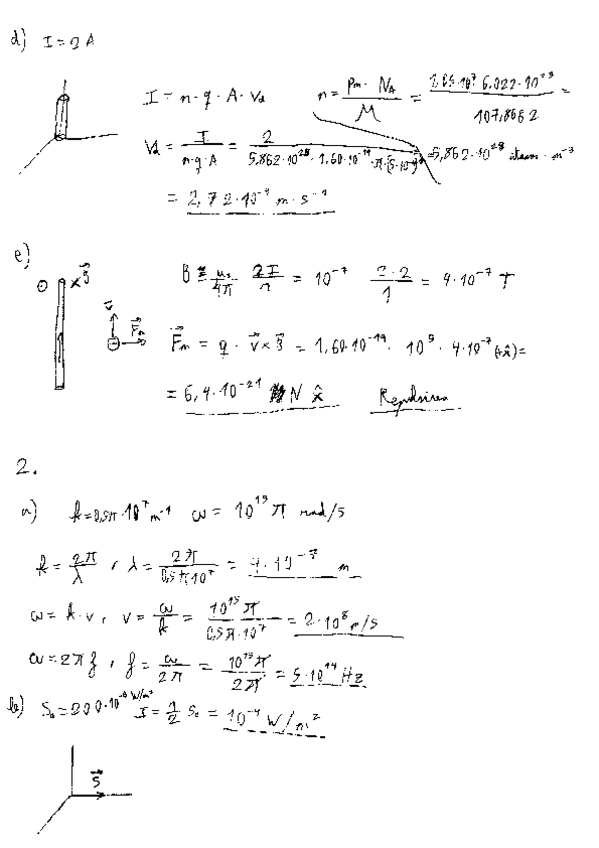 d) I = 2 A
I = n · q · A · Vd n = ρm · NA / M = 6.022 · 10²³ / 107,8682 =
Vd = I / n·q·A = 2 / 5,862·10²⁸ · 1,60·10⁻¹⁹ · π · = 5,862·10²⁸ atoom · m⁻³
= 2,72·10⁻⁴ m·s⁻¹
e)
B = μ₀/4π 2I = 10⁻⁷ 2·2/1 = 4·10⁻⁷ T
F⃗m = q · v⃗ × B⃗ = 1,60·10⁻¹⁹ · 10⁵ · 4·10⁻⁷ (+x̂) =
v⃗ F⃗m
= 6,4·10⁻²¹ N x̂
2.
a) k = 0,5π · 10⁷ m⁻¹ ω = 10¹⁵ π rad/s
k = 2π/λ , λ = 2π / 0,5π10⁷ = 4·10⁻⁷ m
ω = k · v , v = ω/k = 10¹⁵ π / 0,5π·10⁷ = 2·10⁸ m/s
ω = 2πf , f = ω/2π = 10¹⁵π / 2π = 5·10¹⁴ Hz
b) S₀ = 200·10⁻⁶ W/m² I = 1/2 S₀ = 10⁻⁴ W/m²
S⃗